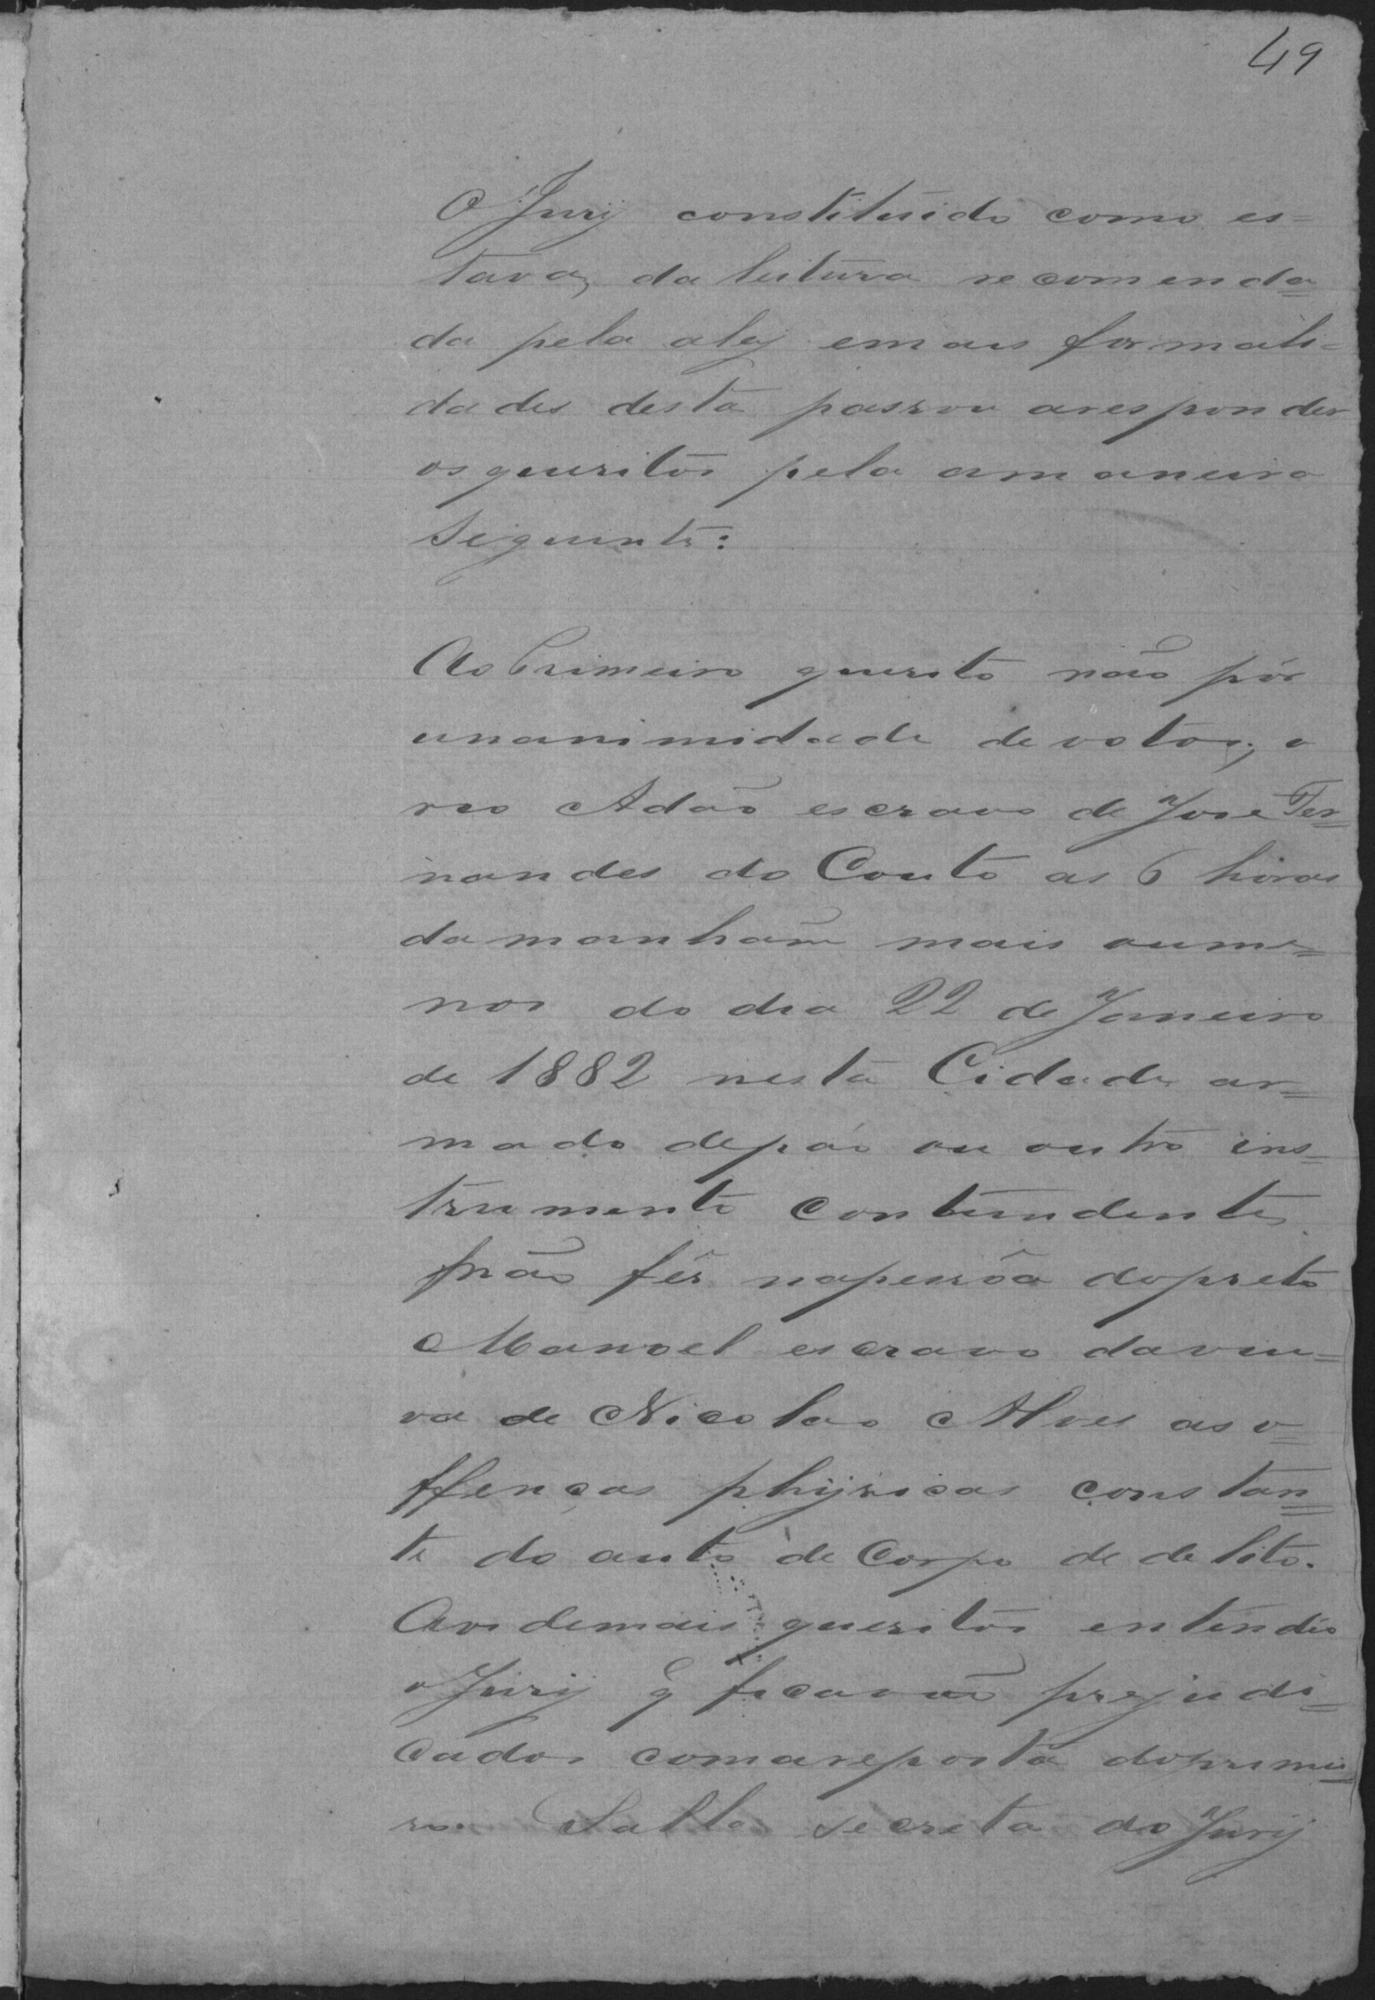 49
O Jury constituido como es=
tava, da leitura recomenda=
da pela aley emais formali=
dades desta passou aresponder
os queritos pela amaneira
Seguinte:
Ao Primeiro querito não pôr
unanimidade de votos; o
reo Adão escravo de Jose Fer=
nandes do Couto as 6 horas
da manham mais oume=
nos do dia 22 de Janeiro
de 1882 nesta Cidade ar=
mado depáo ou outro ins=
trumento contundente
não fês napessôa dopreto
Manoel escravo daviu=
va de Nicolao Alves as o=
ffenças phijsicas constan=
te do auto de Corpo de delito.
Aos demais queritos entendeo
o Jury q ficavão prejudi=
cados comareposta doprimei=
ro. Salla secreta do Jury